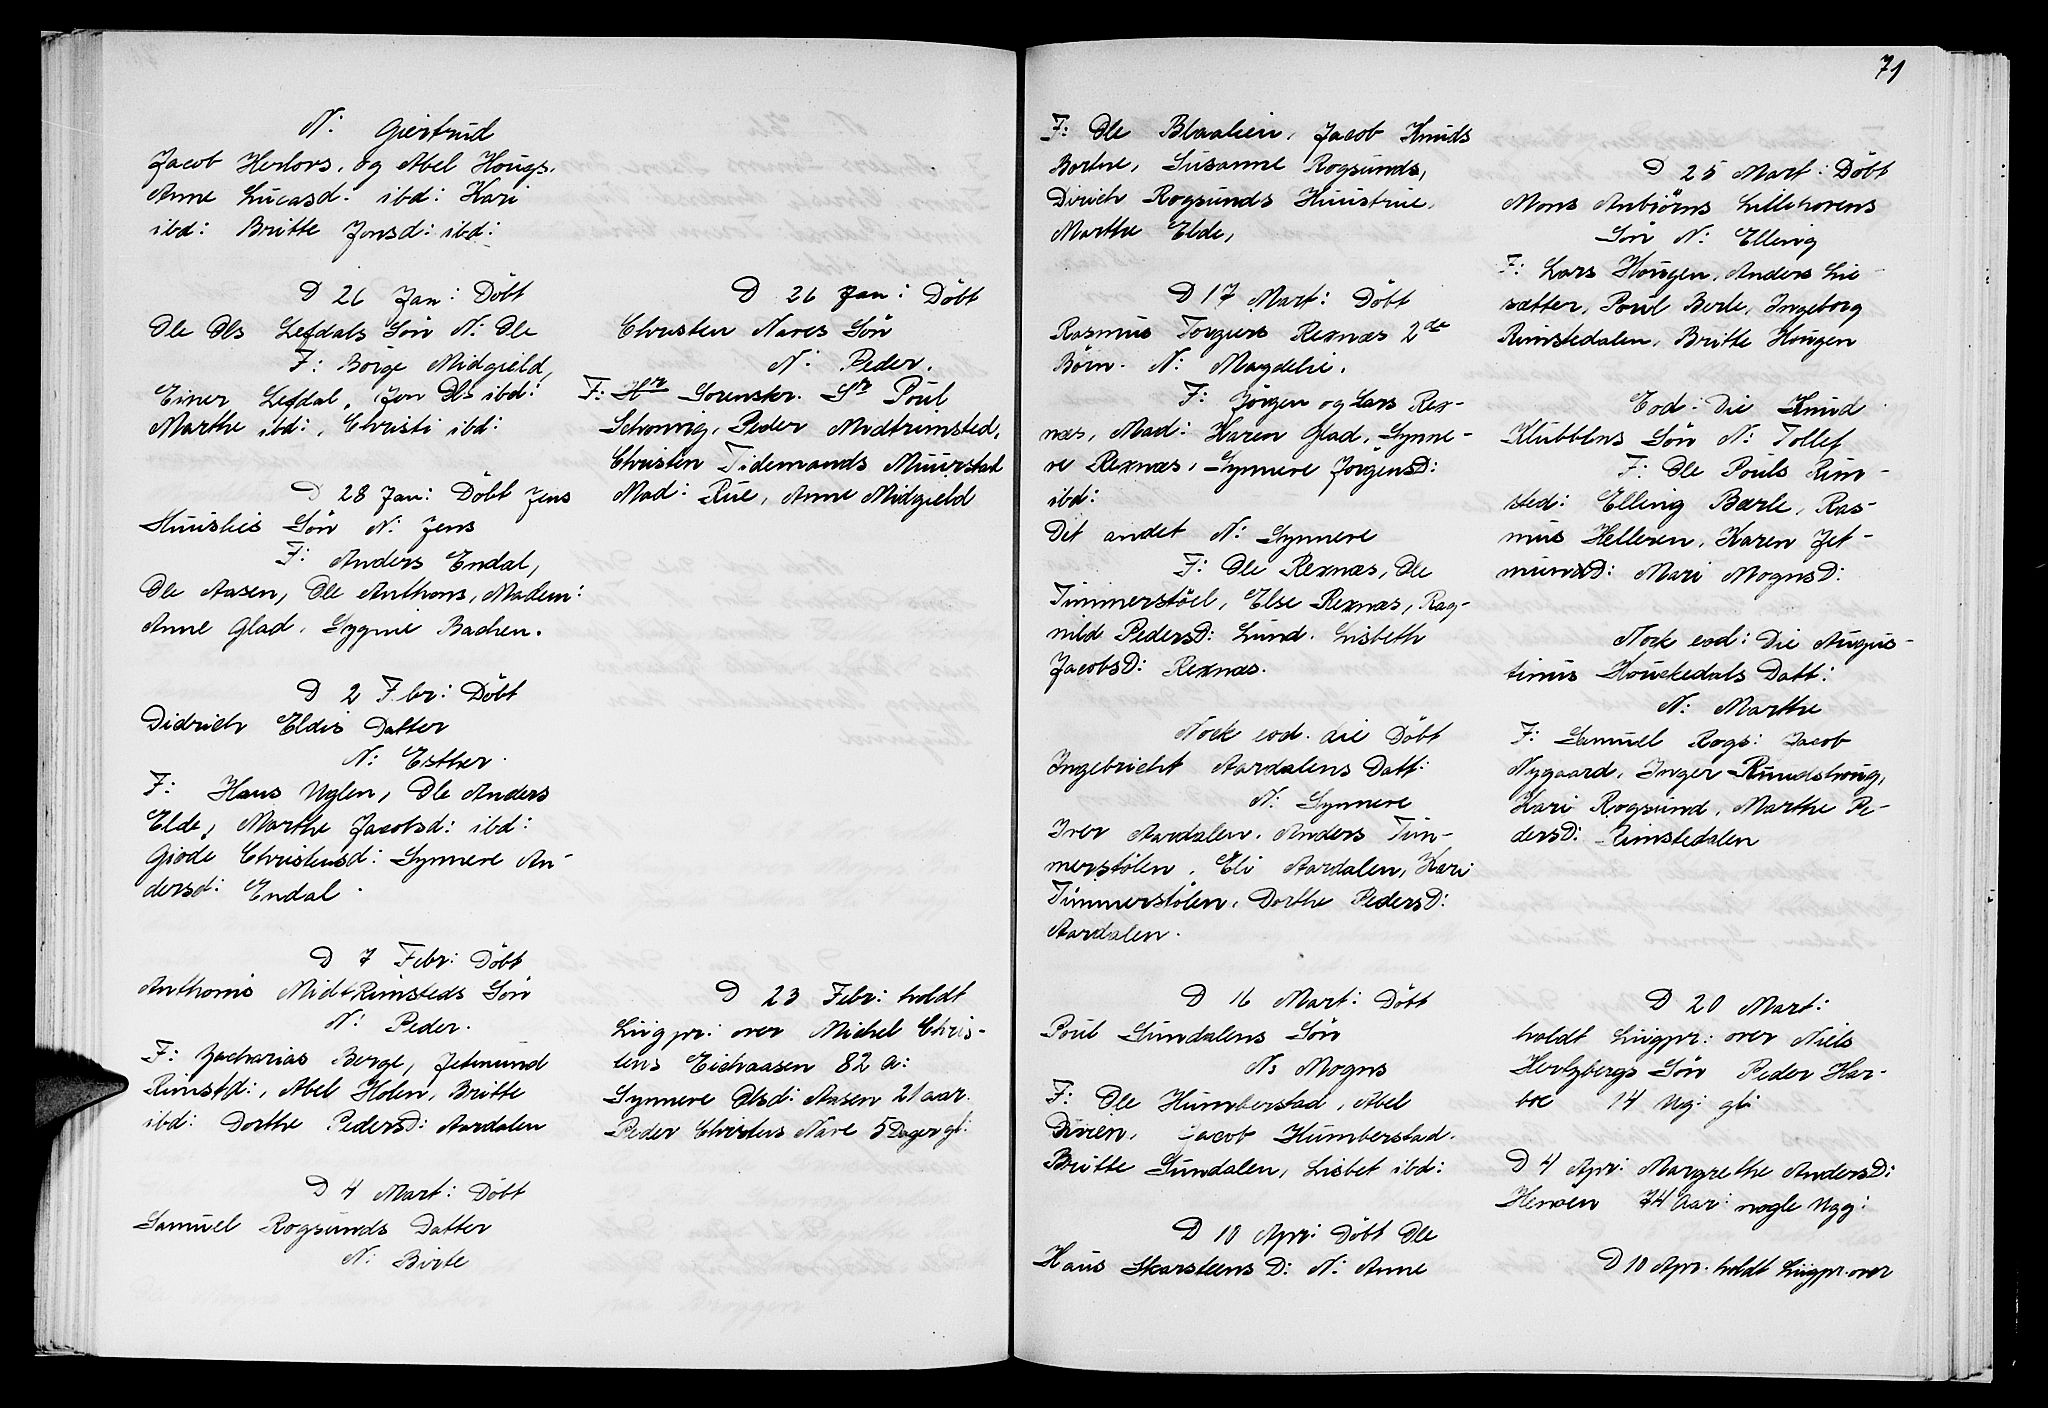 71
N: Giertrud
Jacob Herlovs. og Abel Hougs.
Anne Lucasd. ibd: Kari
ibd: Britte Jonsd: ibd:
D 26 Jan: Döbt
Ole Ols Lefdals Sön N: Ole
F: Börge Midgield,
Einer Lefdal, Jon Ols ibd:
Marthe ibd:, Christi ibd:
D 28 Jan: Döbt Jens
Huuslies Sön N: Jens
F: Anders Endal,
Ole Aasen, Ole Anthons, Madem:
Anne Glad. Sygnie Bachen.
D 2 Febr: Döbt
Didrich Eldis Datter
N: Esther.
F: Hans Uglen, Ole Anders
Elde, Marthe Jacobsd: ibd:
Giöde Christensd: Synnere An-
dersd: Endal.
D 7 Febr: Döbt
Anthonis MidtRimsteds Sön
N: Peder.
F: Zacharias Berge, Jetmund
Rimstd:, Abel Holen, Britte
ibd: Dorthe PedersD: Aardalen
D 4 Mart: Döbt
Samuel Rogsunds Datter
N: Birte
D 26 Jan: Döbt
Christen Naves Sön
N: Peder.
F: Hr Sorenskr. Sr Poul
Schonvig, Peder Midtrimsted,
Christen Tidemands Muurstad
Mad: Rue, Anne Midgield
D 23 Febr: holdt
Liigpr: over Michel Chris-
tens Eichaasen 82 a:
Synnere Olsd: Aasen 21 aar.
Peder Christens Nave 5 Dager gl:
F: Ole Blaalien, Jacob Knuds
Bortne, Susanne Rogsunds,
Dirich Rogsunds Huustrue,
Marthe Elde,
D 17 Mart: Döbt
Rasmus Torgiers Rexnæs 2de
Börn. N: Magdelie.
F: Jörgen og Lars Rex-
næs, Mad: Karen Glad, Synne-
re Rexnæs, Synnere JörgensD:
ibd:
Det andet N: Synnere
F: Ole Rexnæs, Ole
Timmerstöel, Else Rexnæs, Rag-
nild PedersD: Lund. Lisbeth
JacobsD: Rexnæs.
Nock eod. die Döbt
Ingebricht Aardalens Datt:
N: Synnere
Iver Aardalen, Anders Tim-
merstölen, Eli Aardalen, Kari
Timmerstölen, Dorthe PedersD:
Aardalen.
D 16 Mart: Döbt
Poul Sundalens Sön
N: Mogns
F: Ole Humberstad, Abel
Diiren, Jacob Humberstad.
Britte Sundalen, Lisbet ibd:
D 10 Apr: Döbt Ole
Haus Skarsteens D: N: Anne
D 25 Mart: Döbt
Mons Anbiörns Lillehovens
Sön N: Elling
F: Lars Hougen, Anders Lie-
sætter, Poul Berle, Ingeborg
Rimstedalen, Britte Hougen
Eod: Die Knud
Klubbens Sön N: Tollef
F: Ole Pouls Rim-
sted: Elling Bærle, Ras-
mus Helleren, Karen Jet-
mundD: Mari MognsD:
Nock eod: Die Augus-
tinus Houckedals Datt:
N: Marthe
F: Samuel Rogs: Jacob
Nygaard, Inger Rundehoug,
Kari Rogsund, Marthe Pe-
dersD: Rimstedalen
D 20 Mart:
holdt Liigpr: over Niels
Hertzbergs Sön Peder Har-
boe 14 Ug: gl:
D 4 Apr: Margrethe AndersD:
Henöen 74 Aar: nogle Ugg:
D 10 Apr. holdt Liigpr. over